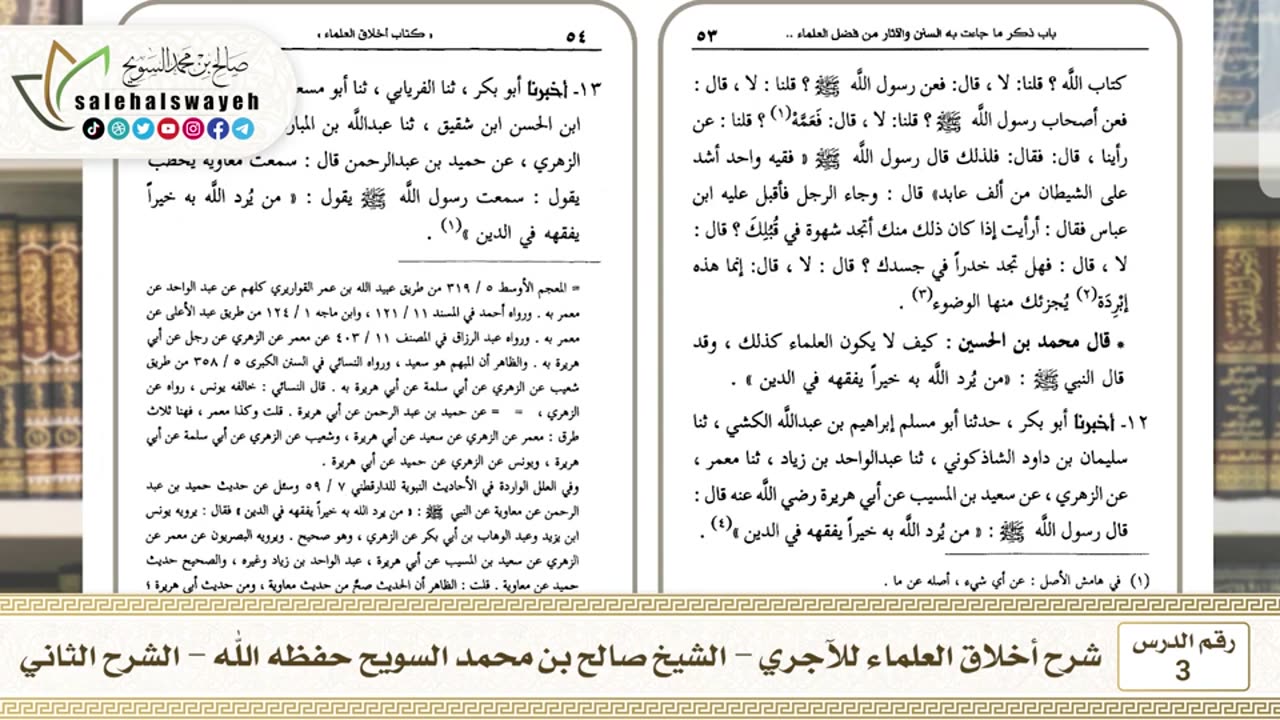 صالح بن محمد السويح
salehalswayeh
باب ذكر ما جاءت به السنن والآثار من فضل العلماء ..
٥٣
كتاب اللَّه ؟ قلنا: لا ، قال: فعن رسول اللَّه ﷺ ؟ قلنا : لا ، قال :
فعن أصحاب رسول اللَّه ﷺ ؟ قلنا: لا ، قال: فَعَمَّهْ(١) ؟ قلنا : عن
رأينا ، قال: فقال: فلذلك قال رسول اللَّه ﷺ « فقيه واحد أشد
على الشيطان من ألف عابد» قال : وجاء الرجل فأقبل عليه ابن
عباس فقال : أرأيت إذا كان ذلك منك أتجد شهوة في قُبُلِكَ ؟ قال :
لا ، قال : فهل تجد خدراً في جسدك ؟ قال : لا ، قال: إنما هذه
إِبْرِدَة(٢) يُجزئك منها الوضوء(٣) .
* قال محمد بن الحسين : كيف لا يكون العلماء كذلك ، وقد
قال النبي ﷺ : «من يُرد اللَّه به خيراً يفقهه في الدين » .
١٢- أخبرنا أبو بكر ، حدثنا أبو مسلم إبراهيم بن عبداللَّه الكشي ، ثنا
سليمان بن داود الشاذكوني ، ثنا عبدالواحد بن زياد ، ثنا معمر ،
عن الزهري ، عن سعيد بن المسيب عن أبي هريرة رضي اللَّه عنه قال :
قال رسول اللَّه ﷺ : « من يُرد اللَّه به خيراً يفقهه في الدين »(٤) .
(١) في هامش الأصل : عن أي شيء ، أصله عن ما .
٥٤
« كتاب أخلاق العلماء »
١٣- أخبرنا أبو بكر ، ثنا الفريابي ، ثنا أبو مسع
ابن الحسن ابن شقيق ، ثنا عبداللَّه بن المبار
الزهري ، عن حميد بن عبدالرحمن قال : سمعت معاوية يخطب
يقول : سمعت رسول اللَّه ﷺ يقول : « من يُرد اللَّه به خيراً
يفقهه في الدين »(١) .
= المعجم الأوسط ٥ / ٣١٩ من طريق عبيد الله بن عمر القواريري كلهم عن عبد الواحد عن
معمر به . ورواه أحمد في المسند ١١ / ١٢١ ، وابن ماجه ١ / ١٢٤ من طريق عبد الأعلى عن
معمر به . ورواه عبد الرزاق في المصنف ١١ / ٤٠٣ عن معمر عن الزهري عن رجل عن أبي
هريرة به . والظاهر أن المبهم هو سعيد ، ورواه النسائي في السنن الكبرى ٥ / ٣٥٨ من طريق
شعيب عن الزهري عن أبي سلمة عن أبي هريرة به . قال النسائي : خالفه يونس ، رواه عن
الزهري ، = = عن حميد بن عبد الرحمن عن أبي هريرة . قلت وكذا معمر ، فهنا ثلاث
طرق : معمر عن الزهري عن سعيد عن أبي هريرة ، وشعيب عن الزهري عن أبي سلمة عن أبي
هريرة ، ويونس عن الزهري عن حميد عن أبي هريرة .
وفي العلل الواردة في الأحاديث النبوية للدارقطني ٧ / ٥٩ وسئل عن حديث حميد بن عبد
الرحمن عن معاوية عن النبي ﷺ : « من يرد الله به خيراً يفقهه في الدين » فقال : يرويه يونس
ابن يزيد وعبد الوهاب بن أبي بكر عن الزهري ، وهو صحيح . ويرويه البصريون عن معمر عن
الزهري عن سعيد بن المسيب عن أبي هريرة ، عبد الواحد بن زياد وغيره ، والصحيح حديث
حميد عن معاوية . قلت : الظاهر أن الحديث صحَّ من حديث معاوية ، ومن حديث أبي هريرة ؛
رقم الدرس
3
شرح أخلاق العلماء للآجري – الشيخ صالح بن محمد السويح حفظه الله – الشرح الثاني